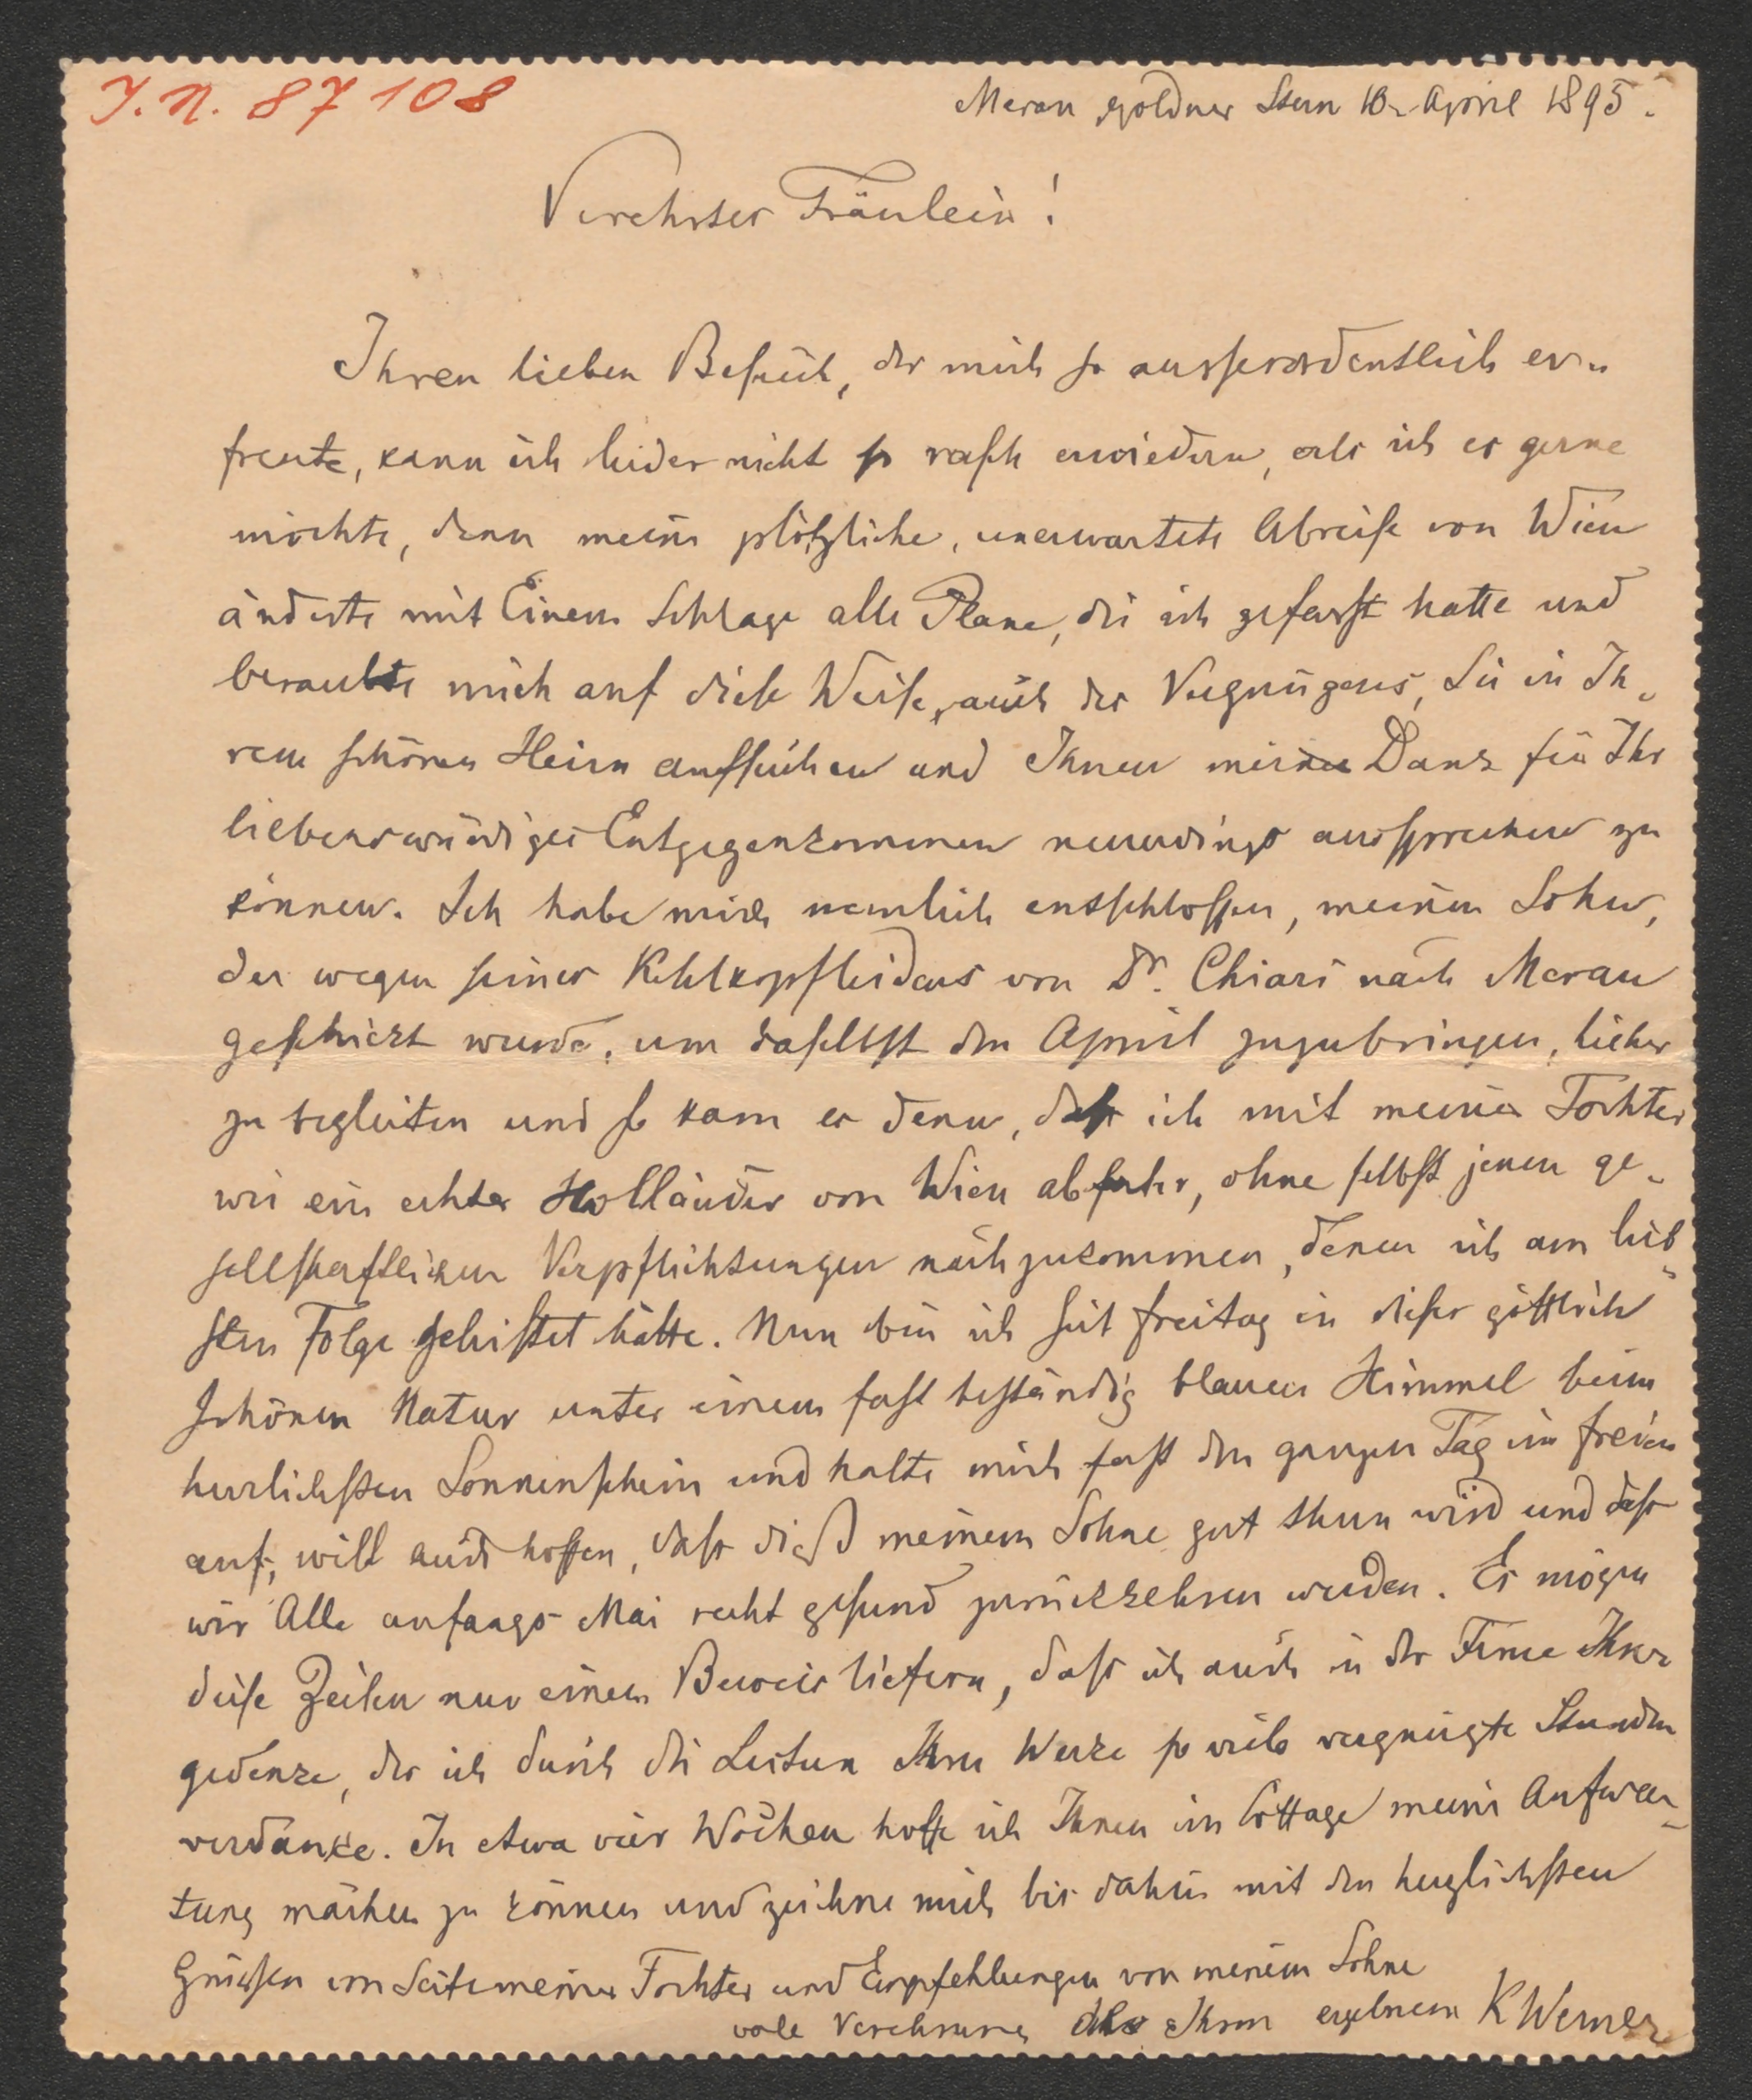 J. N. 87108
Meran goldner Stern 10. April 1895.
Verehrtes Fräulein!
Ihren lieben Besuch, der mich so ausserordentlich er-
freute, kann ich leider nicht so rasch erwiedern, als ich es gerne
möchte, denn meine plötzliche, unerwartete Abreise von Wien
änderte mit Einem Schlage alle Plane, die ich gefasst hatte und
beraubte mich auf diese Weise, auch des Vergnügens, Sie in Ih-
rem schönen Heim aufsuchen und Ihnen meinen Dank für Ihr
liebenswürdiges Entgegenkommen neuerdings aussprechen zu
können. Ich habe mich nemlich entschlossen, meinen Sohn,
der wegen seines Kehlkopfleidens von Dr. Chiari nach Meran
geschickt wurde, um daselbst den April zuzubringen, hieher
zu begleiten und so kam es denn, dass ich mit meiner Tochter
wie ein echter Holländer von Wien abfuhr, ohne selbst jenen ge-
sellschaftlichen Verpflichtungen nachzukommen, denen ich am lieb-
sten Folge geleistet hätte. Nun bin ich seit Freitag in dieser göttlich
schönen Natur unter einem fast beständig blauen Himmel beim
herrlichsten Sonnenschein und halte mich fast den ganzen Tag im freien
auf, will auch hoffen, dass dieß meinem Sohne gut thun wird und dass
wir Alle anfangs Mai recht gesund zurückkehren werden. Es mögen
diese Zeilen nur einen Beweis liefern, dass ich auch in der Ferne Ihrer
gedenke, der ich durch die Lectüre Ihrer Werke so viele vergnügte Stunden
verdanke. In etwa vier Wochen hoffe ich Ihnen im Cottage meine Aufwar-
tung machen zu können und zeichne mich bis dahin mit den herzlichsten
Grüssen von Seite meiner Tochter und Empfehlungen von meinem Sohne
voll Verehrung als Ihren ergebenen K Werner